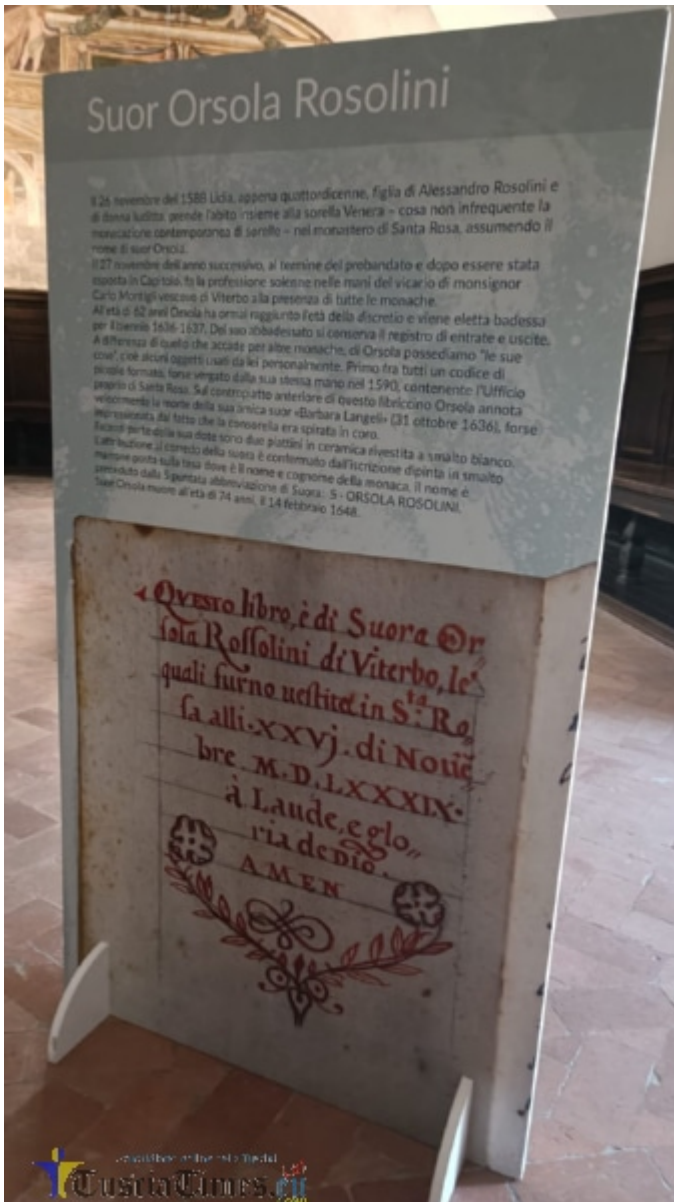 Suor Orsola Rosolini
Il 26 novembre del 1588 Lidia, appena quattordicenne, figlia di Alessandro Rosolini e
di donna Iuditta prende l'abito insieme alla sorella Venera – cosa non infrequente la
monacazione contemporanea di sorelle – nel monastero di Santa Rosa, assumendo il
nome di suor Orsola.
Il 27 novembre dell'anno successivo, al termine del probandato e dopo essere stata
esposta in Capitolo, fa la professione solenne nelle mani del vicario di monsignor
Carlo Montigli vescovo di Viterbo alla presenza di tutte le monache.
All'età di 62 anni Orsola ha ormai raggiunto l'età della discretio e viene eletta badessa
per il biennio 1636-1637. Del suo abbadessato si conserva il registro di entrate e uscite.
A differenza di quello che accade per altre monache, di Orsola possediamo "le sue
cose", cioè alcuni oggetti usati da lei personalmente. Primo fra tutti un codice di
piccolo formato, forse vergato dalla sua stessa mano nel 1590, contenente l'Ufficio
proprio di Santa Rosa. Sul contropiatto anteriore di questo libriccino Orsola annota
velocemente la morte della sua amica suor «Barbara Langeli» (31 ottobre 1636), forse
impressionata dal fatto che la consorella era spirata in coro.
Facenti parte della sua dote sono due piattini in ceramica rivestita a smalto bianco.
L'attribuzione al corredo della suora è confermato dall'iscrizione dipinta in smalto
marrone posta sulla tesa dove è il nome e cognome della monaca, il nome è
preceduto dalla S puntata abbreviazione di Suora: S · ORSOLA ROSOLINI.
Suor Orsola muore all'età di 74 anni, il 14 febbraio 1648.
QVESTO libro, è di Suora Or„
sola Rossolini di Viterbo, le
quali furno uestite in S.ta Ro„
sa alli · XXVj · di Nouē
bre M·D·LXXXIX·
à Laude, e glo„
ria de DIO.
AMEN
TusciaTimes.eu